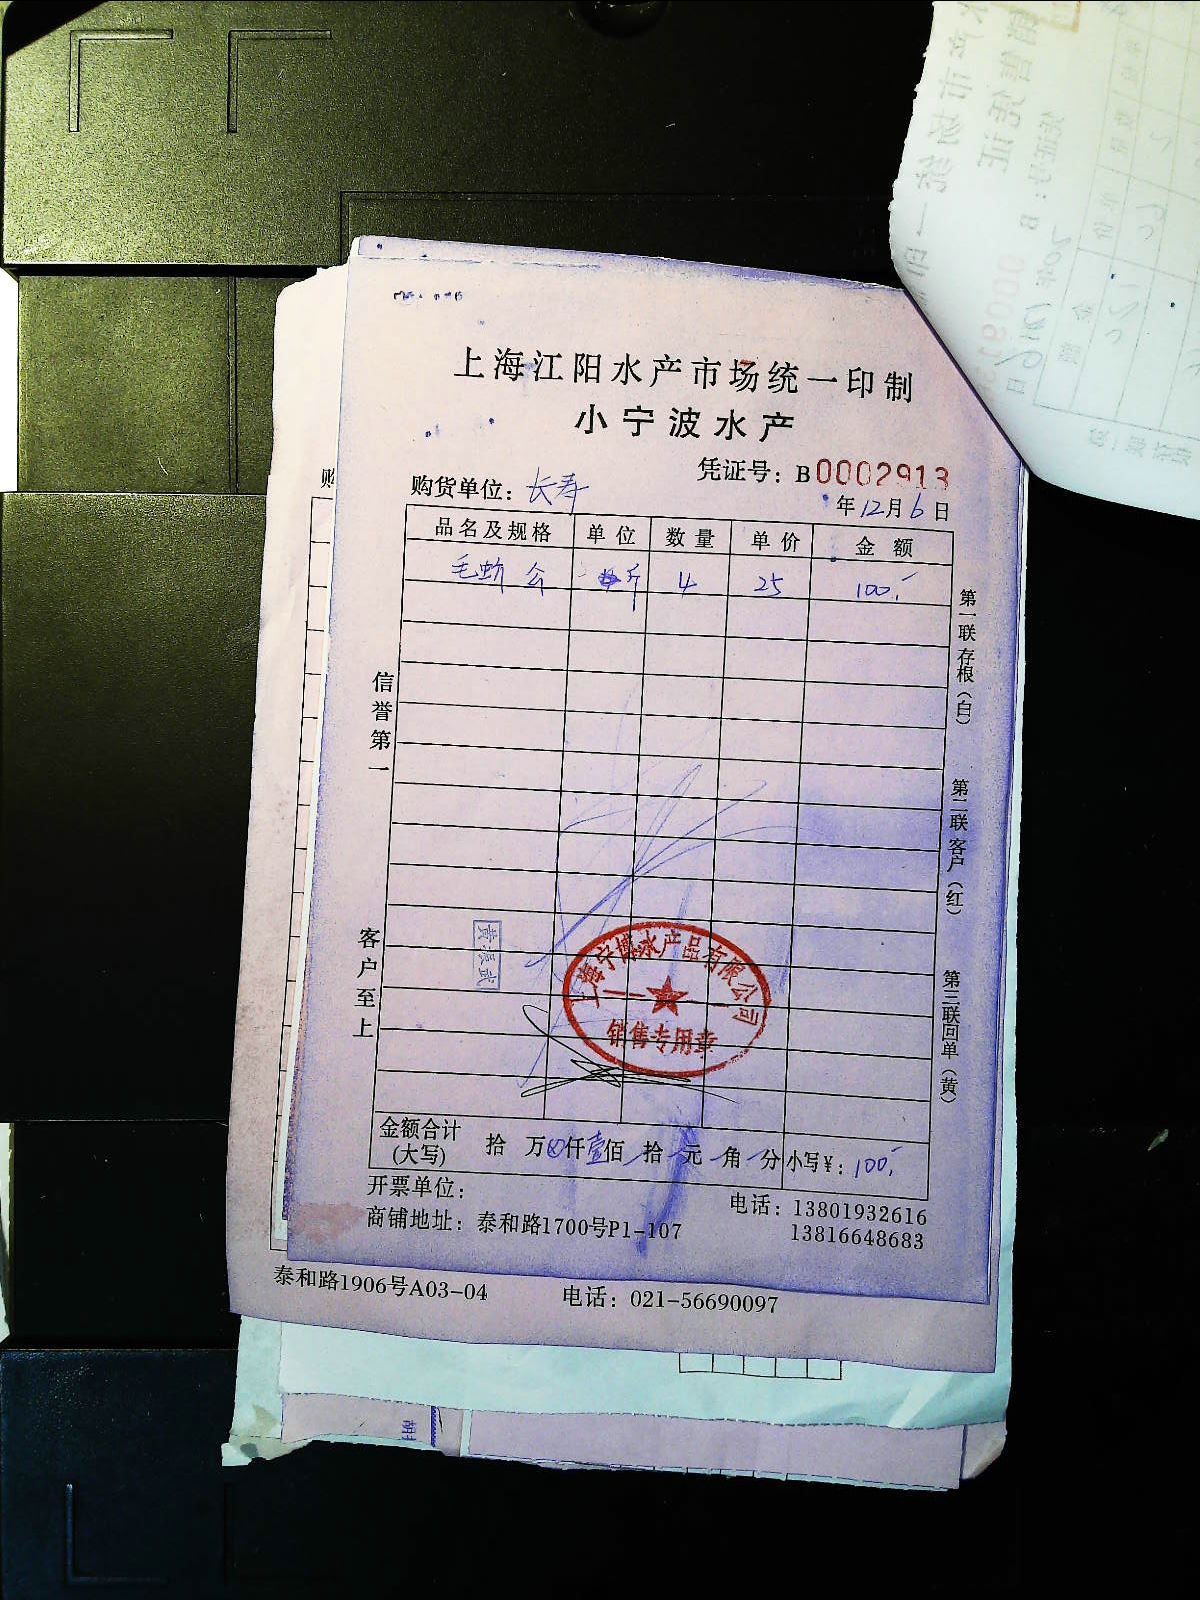 上海江阳水产市场统一印制
小宁波水产
凭证号：B0002913
购货单位：长寿
年12月6日
品名及规格 单位 数量 单价 金额
毛蚶 斤 4 25 100.-
信誉第一
客户至上
第一联存根（白）
第二联客户（红）
第三联回单（黄）
黄振武
上海宁博水产品有限公司
销售专用章
金额合计(大写) 拾 万 仟壹佰 拾 元 角 分 小写￥：100.-
开票单位：
电话：13801932616
商铺地址：泰和路1700号P1-107
13816648683
泰和路1906号A03-04 电话：021-56690097
购